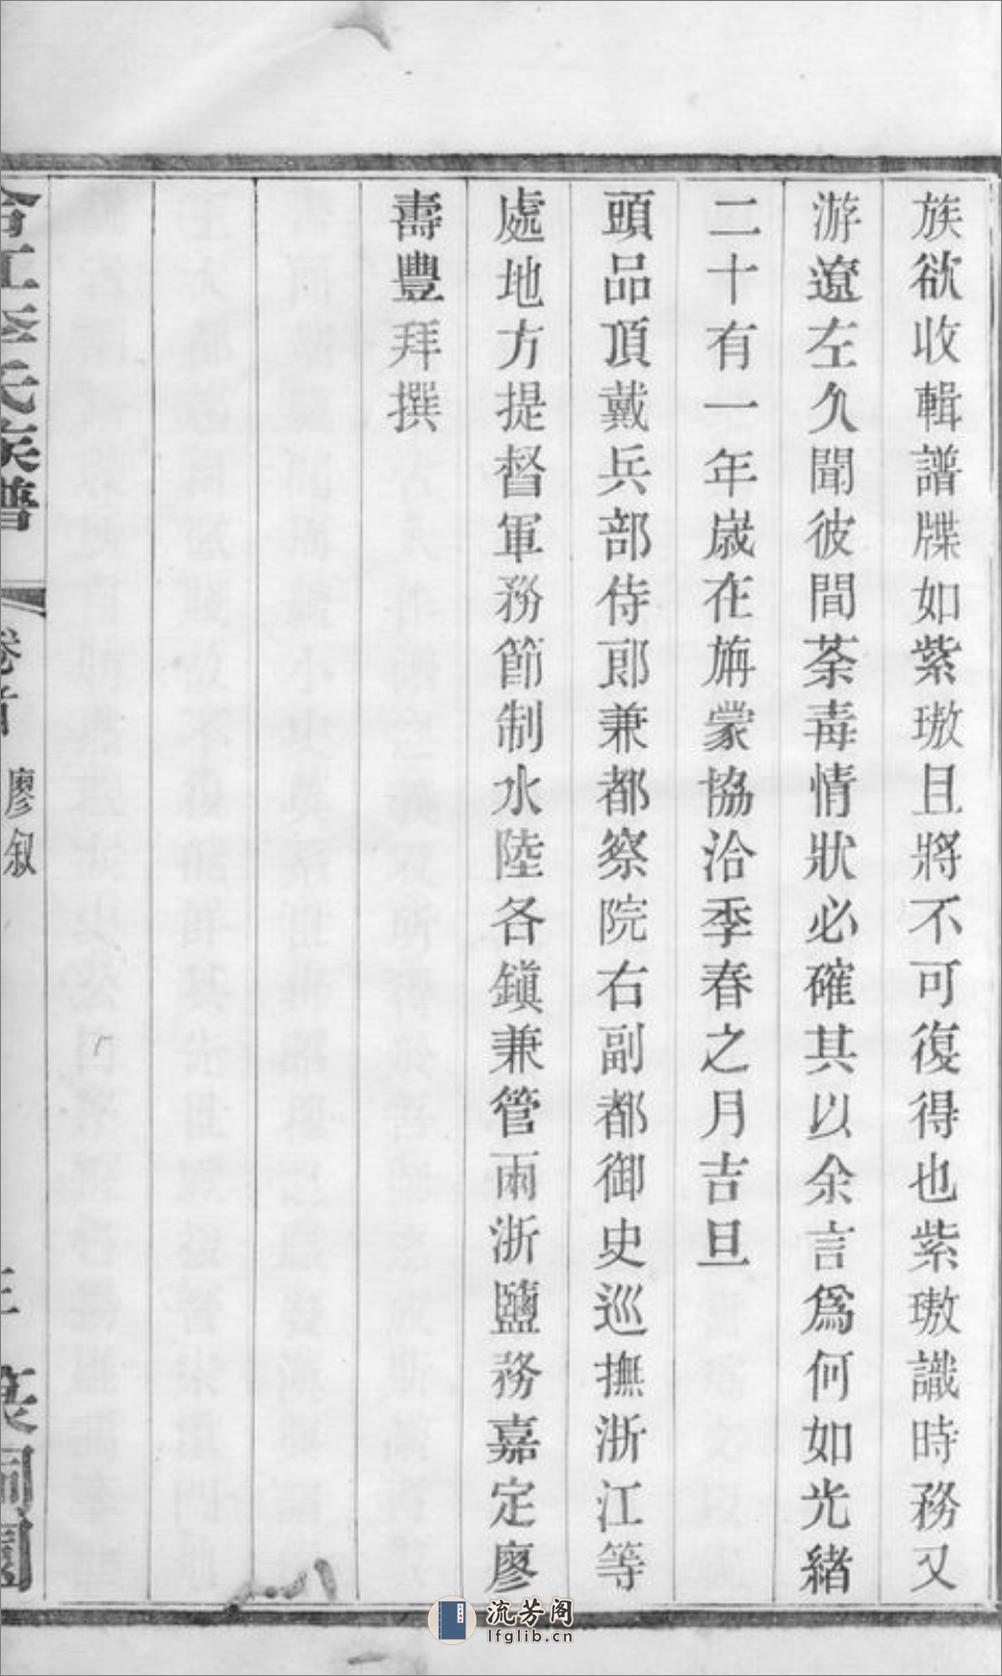 族欲收輯譜牒如紫璈且將不可復得也紫璈識時務又
游遼左久聞彼間荼毒情狀必確其以余言爲何如光緒
二十有一年歲在旃蒙協洽季春之月吉旦
頭品頂戴兵部侍郎兼都察院右副都御史巡撫浙江等
處地方提督軍務節制水陸各鎮兼管兩浙鹽務嘉定廖
壽豐拜撰
李氏族譜
卷首
廖叙
流芳阁
lfglib.cn